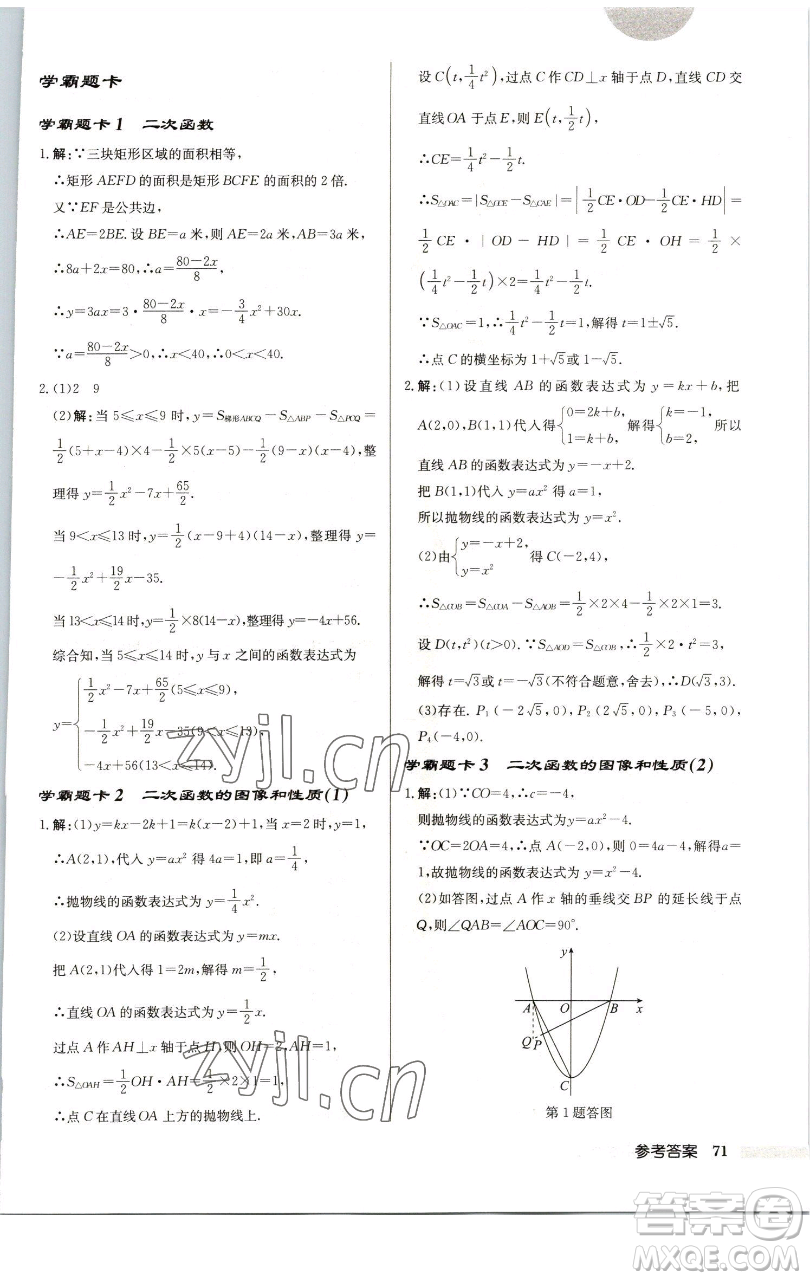 学霸题卡
学霸题卡1 二次函数
1.解:∵三块矩形区域的面积相等，
∴矩形AEFD的面积是矩形BCFE的面积的2倍.
又∵EF是公共边，
∴AE=2BE.设BE=a米,则AE=2a米,AB=3a米，
∴8a+2x=80,∴a=(80-2x)/8，
∴y=3ax=3·(80-2x)/8·x=-3/4x²+30x.
∵a=(80-2x)/8>0,∴x<40,∴0<x<40.
2.(1)2 9
(2)解:当5≤x≤9时,y=S梯形ABCQ-S△ABP-S△PCQ=
1/2(5+x-4)×4-1/2×5(x-5)-1/2(9-x)(x-4),整
理得y=1/2x²-7x+65/2.
当9<x≤13时,y=1/2(x-9+4)(14-x),整理得y=
-1/2x²+19/2x-35.
当13<x≤14时,y=1/2×8(14-x),整理得y=-4x+56.
综合知,当5≤x≤14时,y与x之间的函数表达式为
y={1/2x²-7x+65/2(5≤x≤9),
-1/2x²+19/2x-35(9<x≤13),
-4x+56(13<x≤14).
学霸题卡2 二次函数的图像和性质(1)
1.解:(1)y=kx-2k+1=k(x-2)+1,当x=2时,y=1，
∴A(2,1),代入y=ax²得4a=1,即a=1/4，
∴抛物线的函数表达式为y=1/4x².
(2)设直线OA的函数表达式为y=mx.
把A(2,1)代入得1=2m,解得m=1/2，
∴直线OA的函数表达式为y=1/2x.
过点A作AH⊥x轴于点H,则OH=2,AH=1，
∴S△OAH=1/2OH·AH=1/2×2×1=1.
∴点C在直线OA上方的抛物线上.
设C(t,1/4t²),过点C作CD⊥x轴于点D,直线CD交
直线OA于点E,则E(t,1/2t)，
∴CE=1/4t²-1/2t.
∴S△OAC=|S△OCE-S△CAE|=|1/2CE·OD-1/2CE·HD|=
1/2CE·|OD-HD|=1/2CE·OH=1/2×
(1/4t²-1/2t)×2=1/4t²-1/2t.
∵S△OAC=1,∴1/4t²-1/2t=1,解得t=1±√5.
∴点C的横坐标为1+√5或1-√5.
2.解:(1)设直线AB的函数表达式为y=kx+b,把
A(2,0),B(1,1)代入得{0=2k+b, 1=k+b,解得{k=-1, b=2,所以
直线AB的函数表达式为y=-x+2.
把B(1,1)代入y=ax²得a=1，
所以抛物线的函数表达式为y=x².
(2)由{y=-x+2, y=x²得C(-2,4)，
∴S△COB=S△COA-S△AOB=1/2×2×4-1/2×2×1=3.
设D(t,t²)(t>0).∵S△AOD=S△COB,∴1/2×2·t²=3，
解得t=√3或t=-√3(不符合题意,舍去),∴D(√3,3).
(3)存在.P₁(-2√5,0),P₂(2√5,0),P₃(-5,0)，
P₄(-4,0).
学霸题卡3 二次函数的图像和性质(2)
1.解:(1)∵CO=4,∴c=-4，
则抛物线的函数表达式为y=ax²-4.
∵OC=2OA=4,∴点A(-2,0),则0=4a-4,解得a=
1,故抛物线的函数表达式为y=x²-4.
(2)如答图,过点A作x轴的垂线交BP的延长线于点
Q,则∠QAB=∠AOC=90°.
y
A O B x
Q P
C
第1题答图
参考答案 71
zyjl.cn
zyjl.cn
答案卷
MXQE.COM